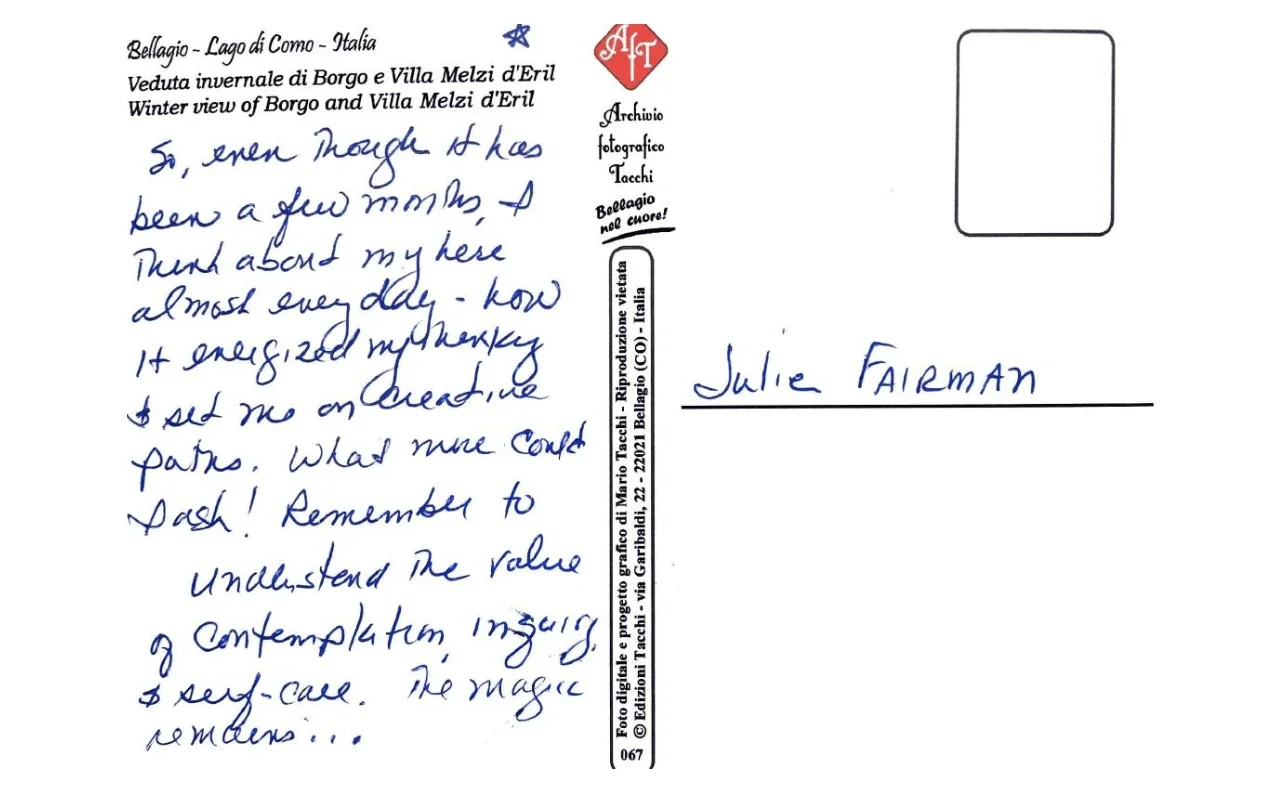 Bellagio - Lago di Como - Italia
Veduta invernale di Borgo e Villa Melzi d'Eril
Winter view of Borgo and Villa Melzi d'Eril
So, even though it has
been a few months, I
think about my here
almost every day - how
it energized my thinking
& set me on creative
paths. What more could
I ask! Remember to
understand the value
of contemplation, inquiry,
& self-care. The magic
remains...
AfT
Archivio
fotografico
Tacchi
Bellagio
nel cuore!
Foto digitale e progetto grafico di Mario Tacchi - Riproduzione vietata
© Edizioni Tacchi - via Garibaldi, 22 - 22021 Bellagio (CO) - Italia
067
Julie FAIRMAN